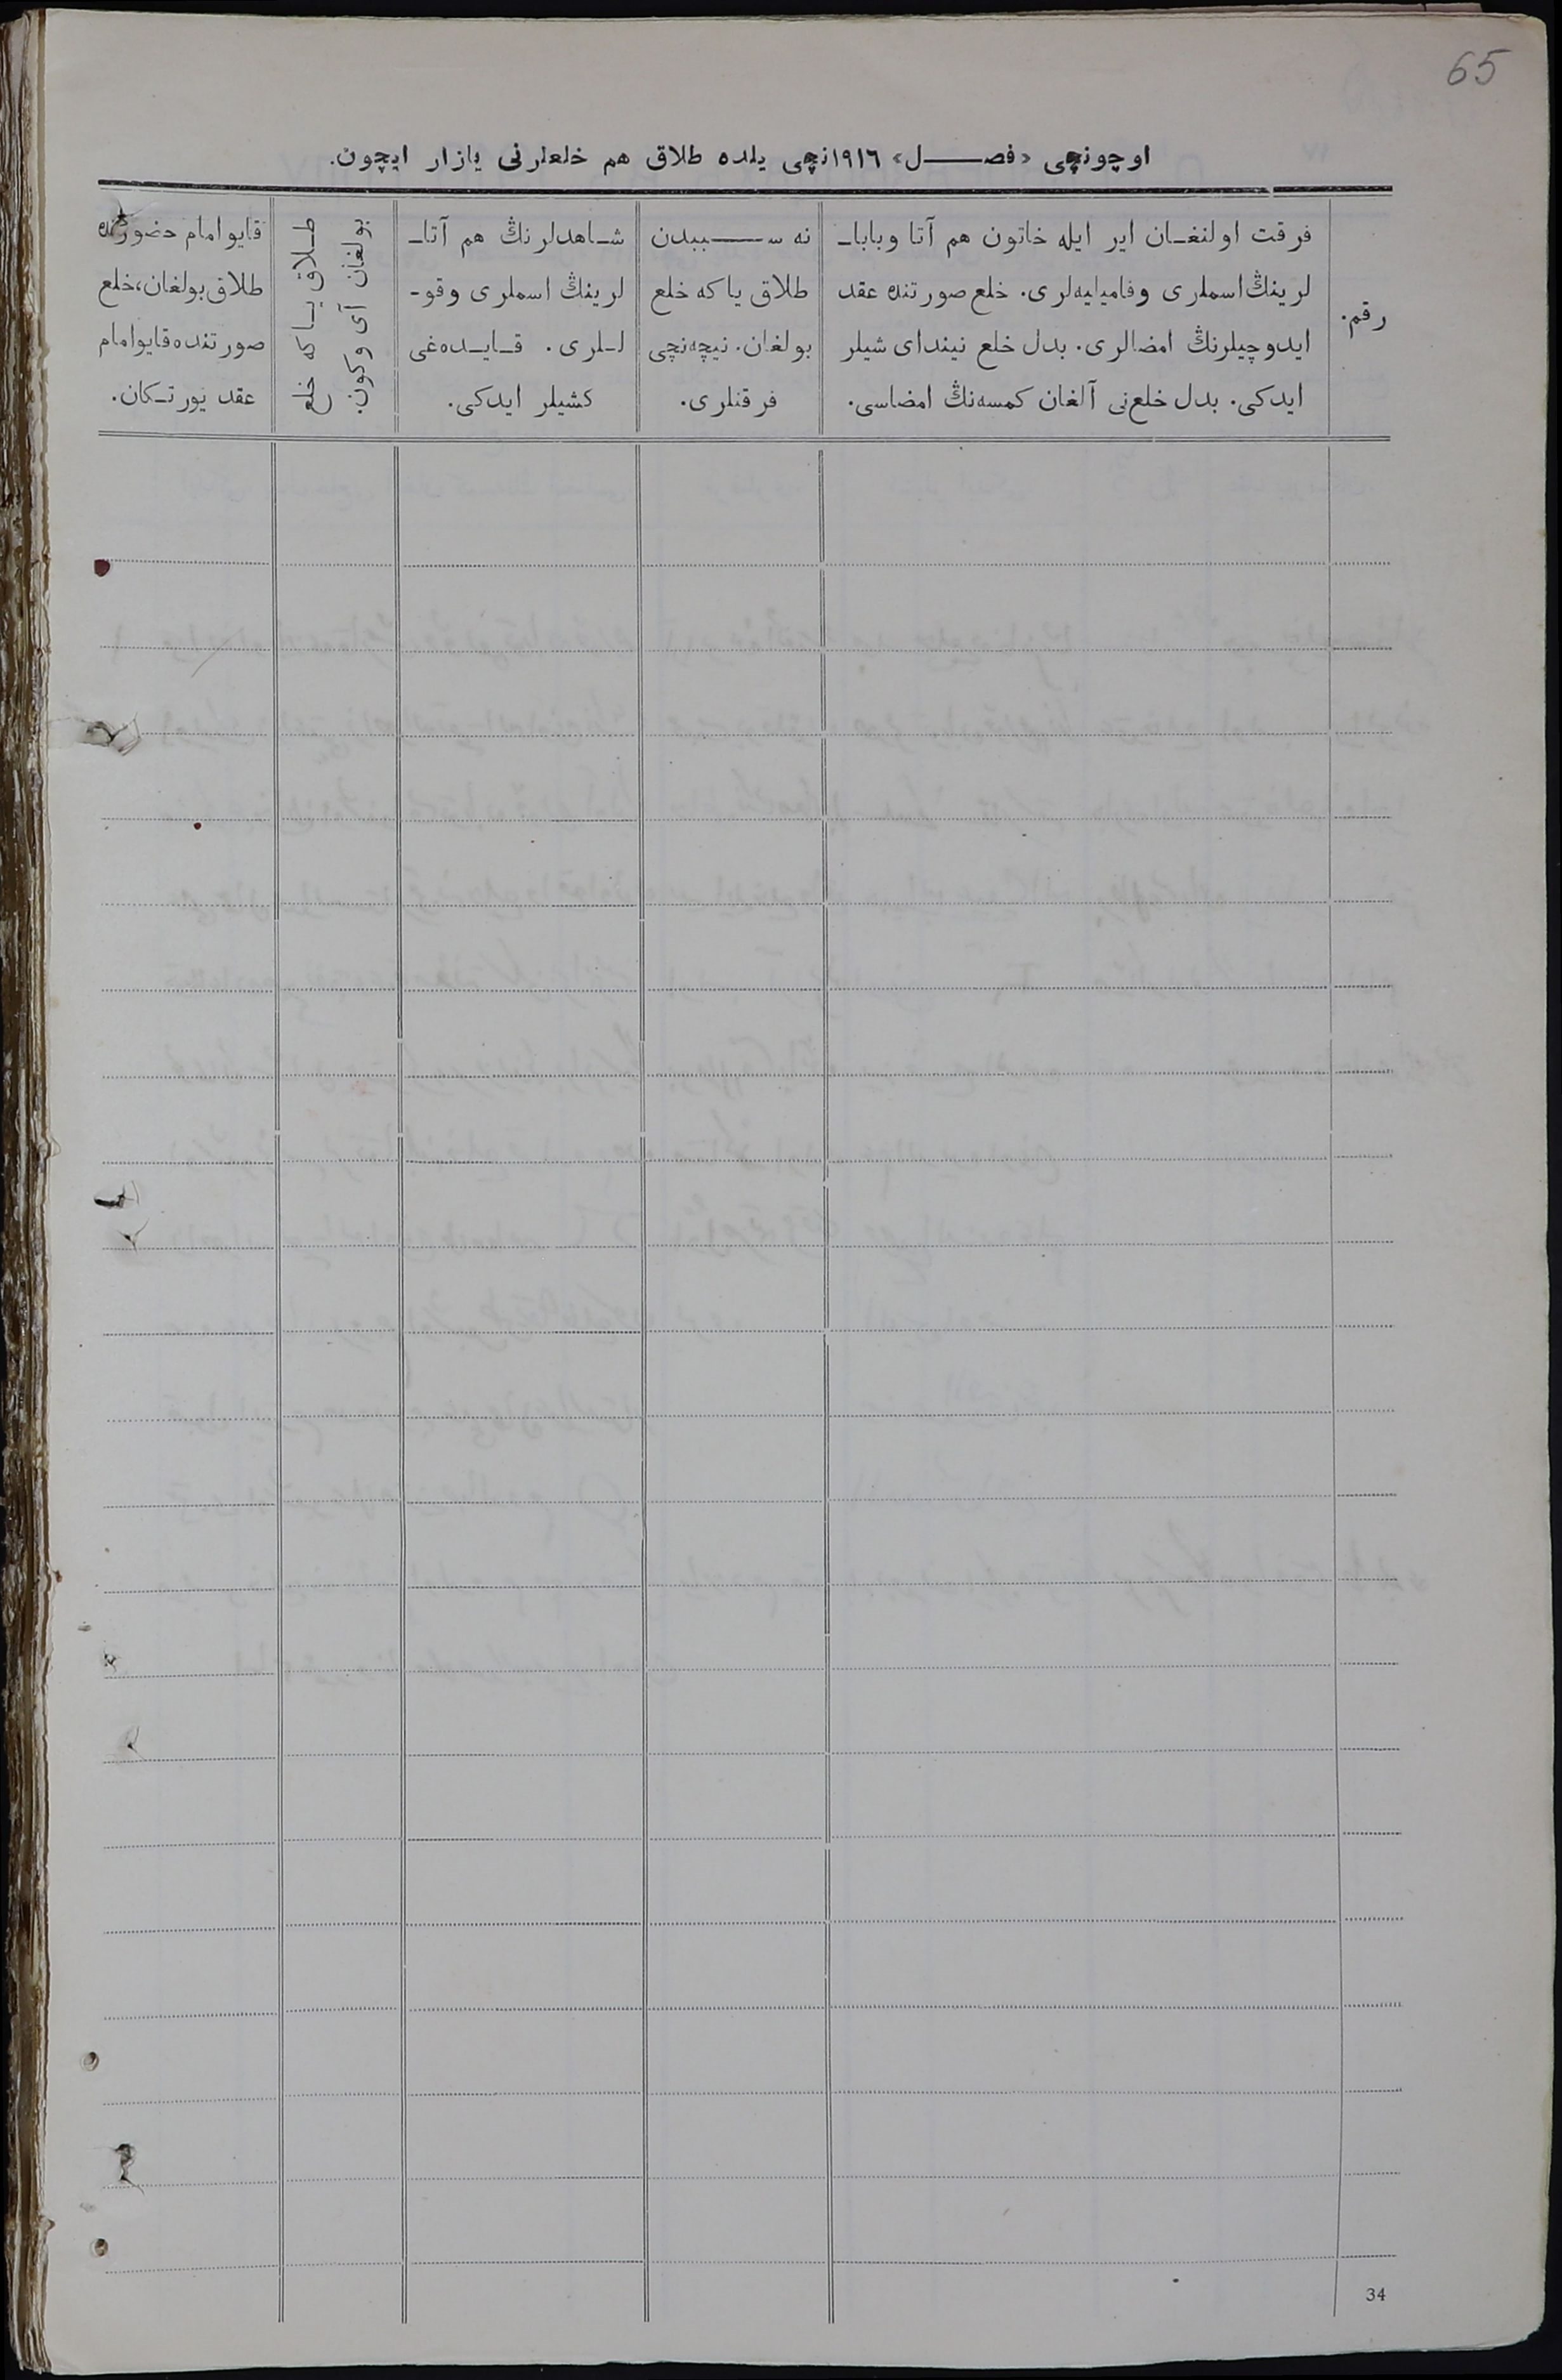 65
اوچونچی «فصل» ١٩١٦نچی یلده طلاق هم خلعلرنی یازار ایچون.
رقم.
فرقت اولنغان ایر ایله خاتون هم آتا وبابا-
لرینڭ اسملری وفامیلیه‌لری. خلع صورتنده عقد
ایدوچیلرنڭ امضالری. بدل خلع نیندای شیلر
ایدکی. بدل خلع‌نی آلغان کمسه‌نڭ امضاسی.
نه سببدن
طلاق یاکه خلع
بولغان. نیچه‌نچی
فرقتلری.
شاهدلرنڭ هم آتا-
لرینڭ اسملری وقو-
لـلری. قایده‌غی
کشیلر ایدکی.
طلاق یاکه خلع
بولغان آی وکون.
قایو امام حضورنده
طلاق بولغان، خلع
صورتنده قایو امام
عقد یورتکان.
34